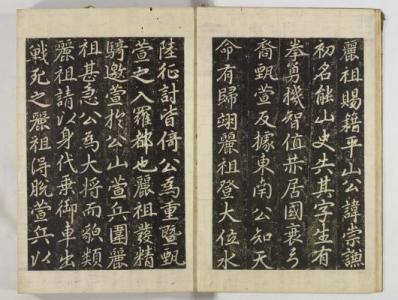 麗祖賜籍平山公諱崇謙
初名能山史失其字生有
拳勇機智值赫居國衰弓
裔甄萱反據東南公知天
命有歸翊麗祖登大位水
陸征討皆倚公爲重曁甄
萱之入羅都也麗祖發精
騎邀萱於公山萱兵圍麗
祖甚急公爲大將而貌類
麗祖請以身代乘御車出
戰死之麗祖得脫萱兵以